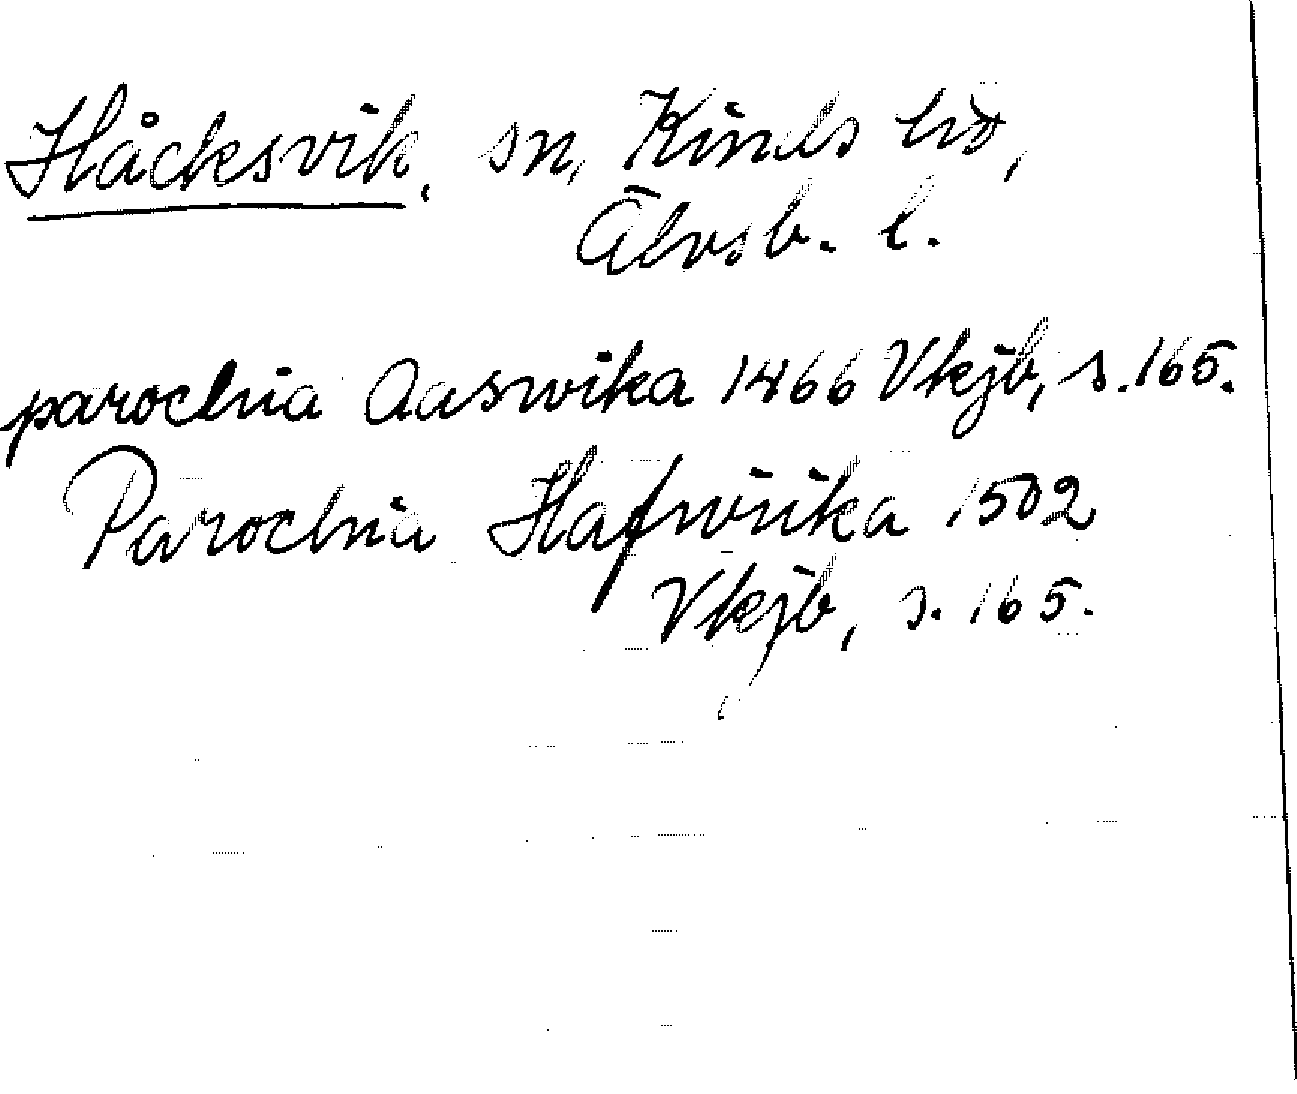 Håcksvik, sn, Kinds hd,
Älvsb. l.
parochia Aaswika 1466 Vkjb, s. 165.
Parochia Hafwiika 1502
Vkjb, s. 165.